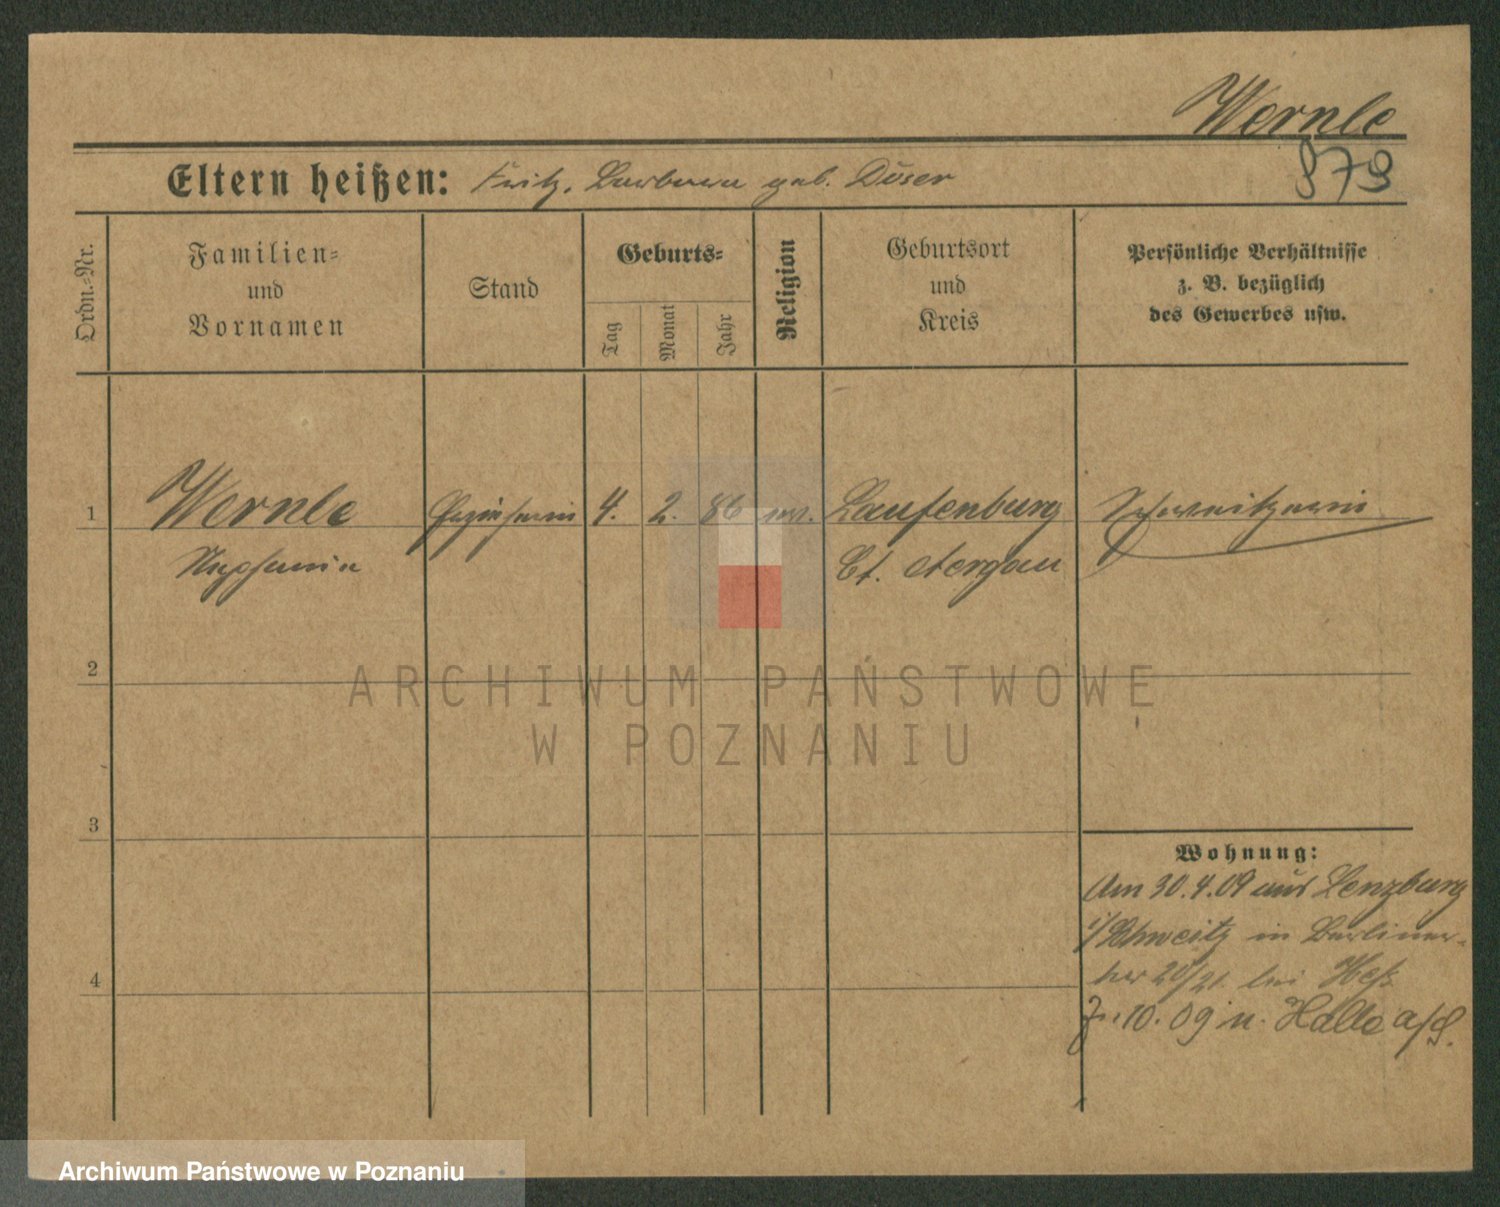 Wernle
979
Eltern heißen: Fritz, Barbara geb. Düser
Ordn.-Nr.
Familien-
und
Vornamen
Stand
Geburts-
Tag
Monat
Jahr
Religion
Geburtsort
und
Kreis
Persönliche Verhältnisse
z. B. bezüglich
des Gewerbes usw.
1
Wernle
4. 2. 86
Laufenburg
Schweitzerin
Stephanie
Ct. Aergau
2
3
4
Wohnung:
Am 30.4.09 aus Lenzburg
i/Schweitz in Berliner-
20/21 bei Heß
10. 09 n. Halle a/S.
ARCHIWUM PAŃSTWOWE
W POZNANIU
Archiwum Państwowe w Poznaniu